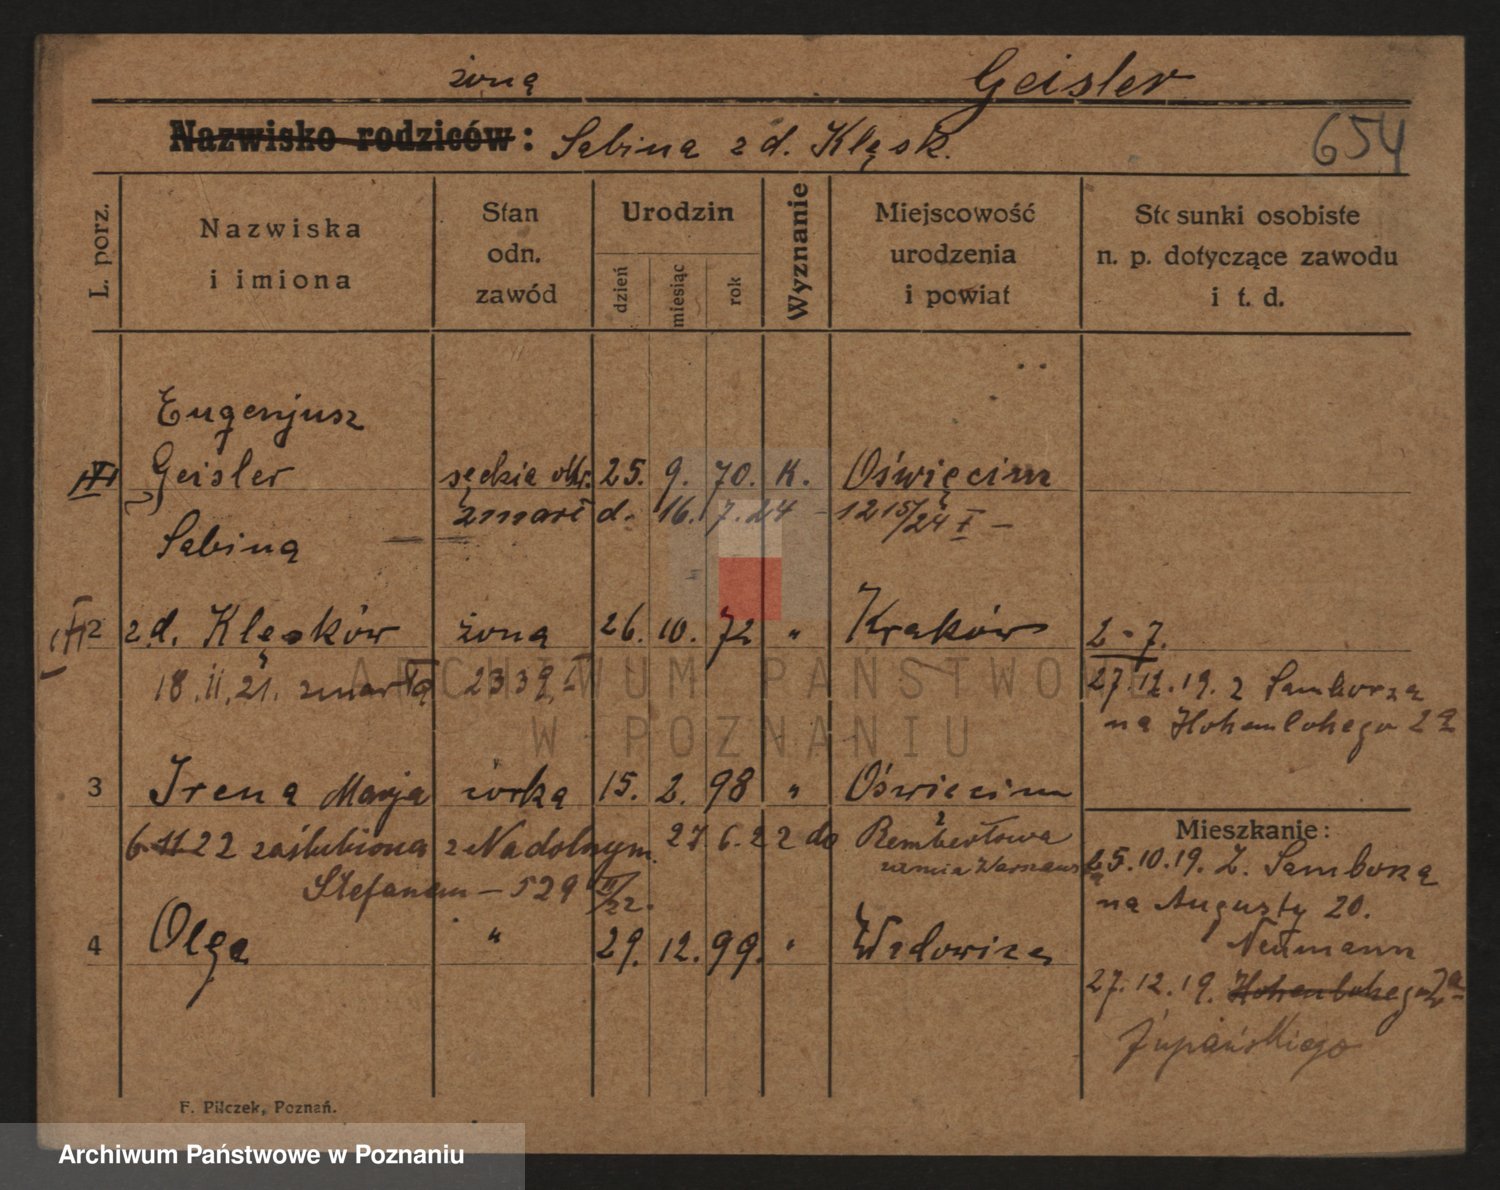 żona Geisler
Nazwisko rodziców: Sabina z d. Klęsk. 654
L. porz.
Nazwiska
i imiona
Stan
odn.
zawód
Urodzin
dzień
miesiąc
rok
Wyznanie
Miejscowość
urodzenia
i powiat
Stosunki osobiste
n. p. dotyczące zawodu
i t. d.
Eugenjusz
Geisler sędzia okr. 25. 9. 70. K. Oświęcim
zmarł d. 16. 7. 24 – 1215/24 I –
Sabina
2 z d. Klęsków żona 26. 10. 72 " Kraków 2-7.
18.11.21. zmarła 2339
27.12.19. z Sambora
na Hohenlohego 2a
3 Irena Marja córka 15. 2. 98 " Oświęcim
6.11 22 zaślubiona z Nadolnym 27 6. 22 do Rembertowa
Stefanem – 529 II/22.
4 Olga " 29. 12. 99. " Wadowice
Mieszkanie:
25.10.19. Z. Sambora
na Augusty 20.
Neumann
27.12.19. Hohenlohego 2a
Żupańskiego
F. Pilczek, Poznań.
ARCHIWUM PAŃSTWOWE
W POZNANIU
Archiwum Państwowe w Poznaniu